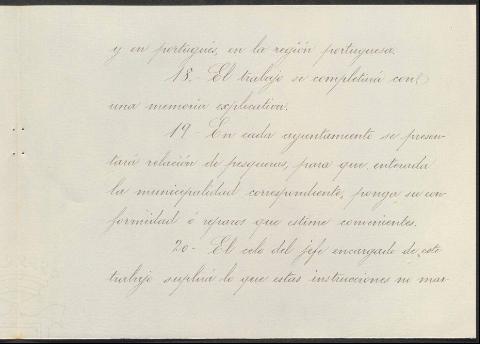 y en portugués, en la región portuguesa.
18.- El trabajo se completará con
una memoria explicativa.
19 - En cada ayuntamiento se presen-
tará relación de pesqueras, para que, enterada
la municipalidad correspondiente, ponga su con-
formidad ó reparos que estime convenientes.
20- El celo del jefe encargado de este
trabajo suplirá lo que estas instrucciones no mar-